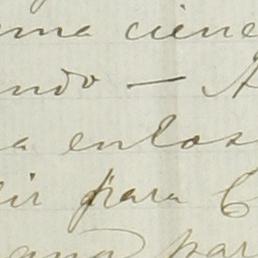 ma cien
ndo — A
a en los
ir para C
ana par